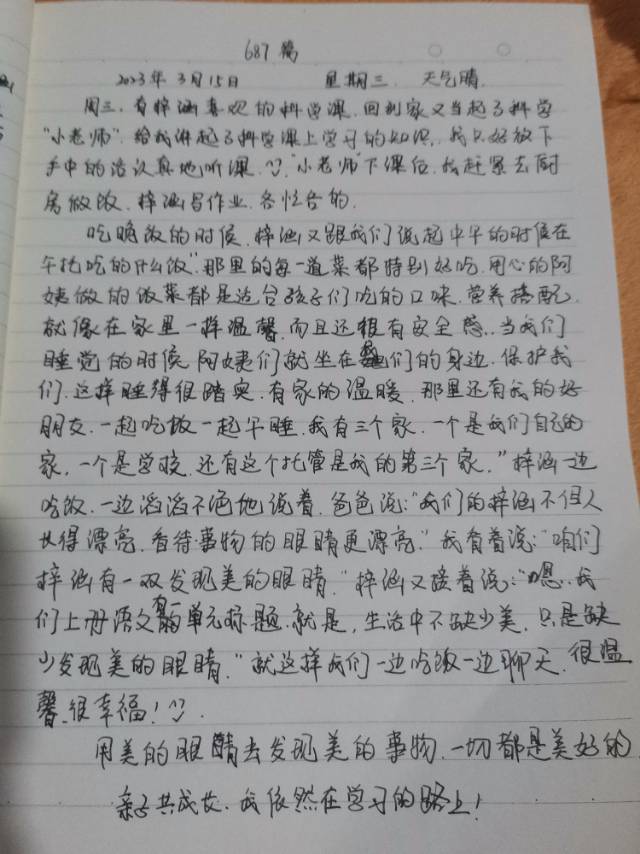 687篇
2023年3月15日 星期三. 天气晴.
周三.有梓涵喜欢的科学课.回到家又当起了科学
“小老师”.给我讲起了科学课上学习的知识.我只好放下
手中的活认真地听课.“小老师”下课后.我赶紧去厨
房做饭.梓涵写作业.各忙各的.
吃晚饭的时候.梓涵又跟我们说起中午的时候在
午托吃的什么饭“那里的每一道菜都特别好吃.用心的阿
姨做的饭菜都是适合孩子们吃的口味.营养搭配.
就像在家里一样温馨.而且还很有安全感..当我们
睡觉的时候阿姨们就坐在我们的身边.保护我
们.这样睡得很踏实.有家的温暖.那里还有我的好
朋友.一起吃饭一起午睡.我有三个家.一个是我们自己的
家.一个是学校.还有这个托管是我的第三个家.”梓涵一边
吃饭.一边滔滔不绝地说着.爸爸说:“我们的梓涵不但人
长得漂亮.看待事物的眼睛更漂亮.”我有着说:“咱们
梓涵有一双发现美的眼睛.”梓涵又接着说:“嗯..我
们上册语文的单元标题.就是,生活中不缺少美.只是缺
少发现美的眼睛.”就这样我们一边吃饭一边聊天.很温
馨.很幸福!
用美的眼睛去发现美的事物.一切都是美好的.
亲子共成长.我依然在学习的路上!